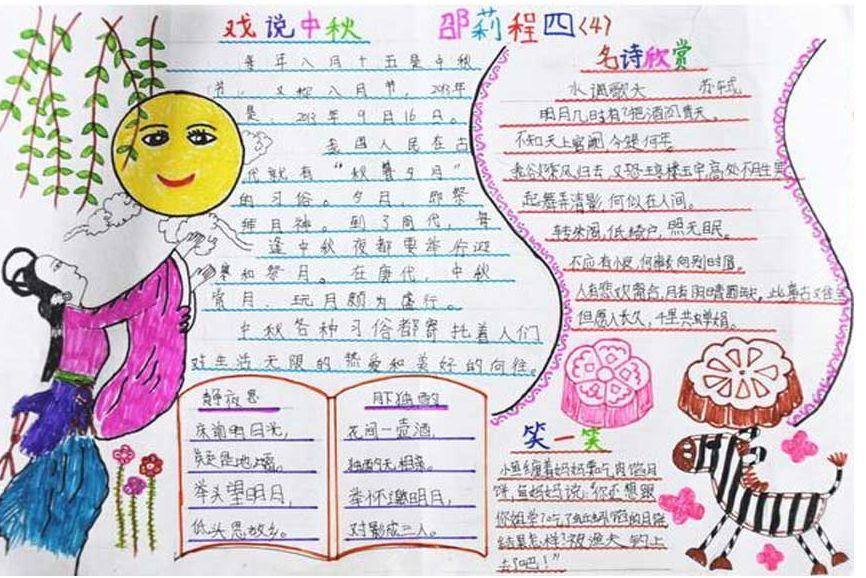 戏说中秋 邵莉程四〈4〉
每年八月十五是中秋
节，又称八月节，2013年
是，2013年9月16日。
我国人民在古
代就有“秋暮夕月”
的习俗。夕月，即祭
拜月神。到了周代，每
逢中秋夜都要举行迎
寒和祭月。在唐代，中秋
赏月、玩月颇为盛行。
中秋各种习俗都寄托着人们
对生活无限的热爱和美好的向往。
静夜思
床前明月光，
疑是地上霜。
举头望明月，
低头思故乡。
月下独酌
花间一壶酒，
独酌无相亲。
举杯邀明月，
对影成三人。
名诗欣赏
水调歌头 苏轼
明月几时有？把酒问青天。
不知天上宫阙，今夕是何年。
我欲乘风归去，又恐琼楼玉宇，高处不胜寒
起舞弄清影，何似在人间。
转朱阁，低绮户，照无眠。
不应有恨，何事长向别时圆。
人有悲欢离合，月有阴晴圆缺，此事古又难全
但愿人长久，千里共婵娟。
笑一笑
小鱼缠着妈妈要吃肉馅月
饼，鱼妈妈说：“你还想跟
你姐学？吃了蚯蚓馅的月饼
结果怎样？被渔夫钓上
去了吧！”